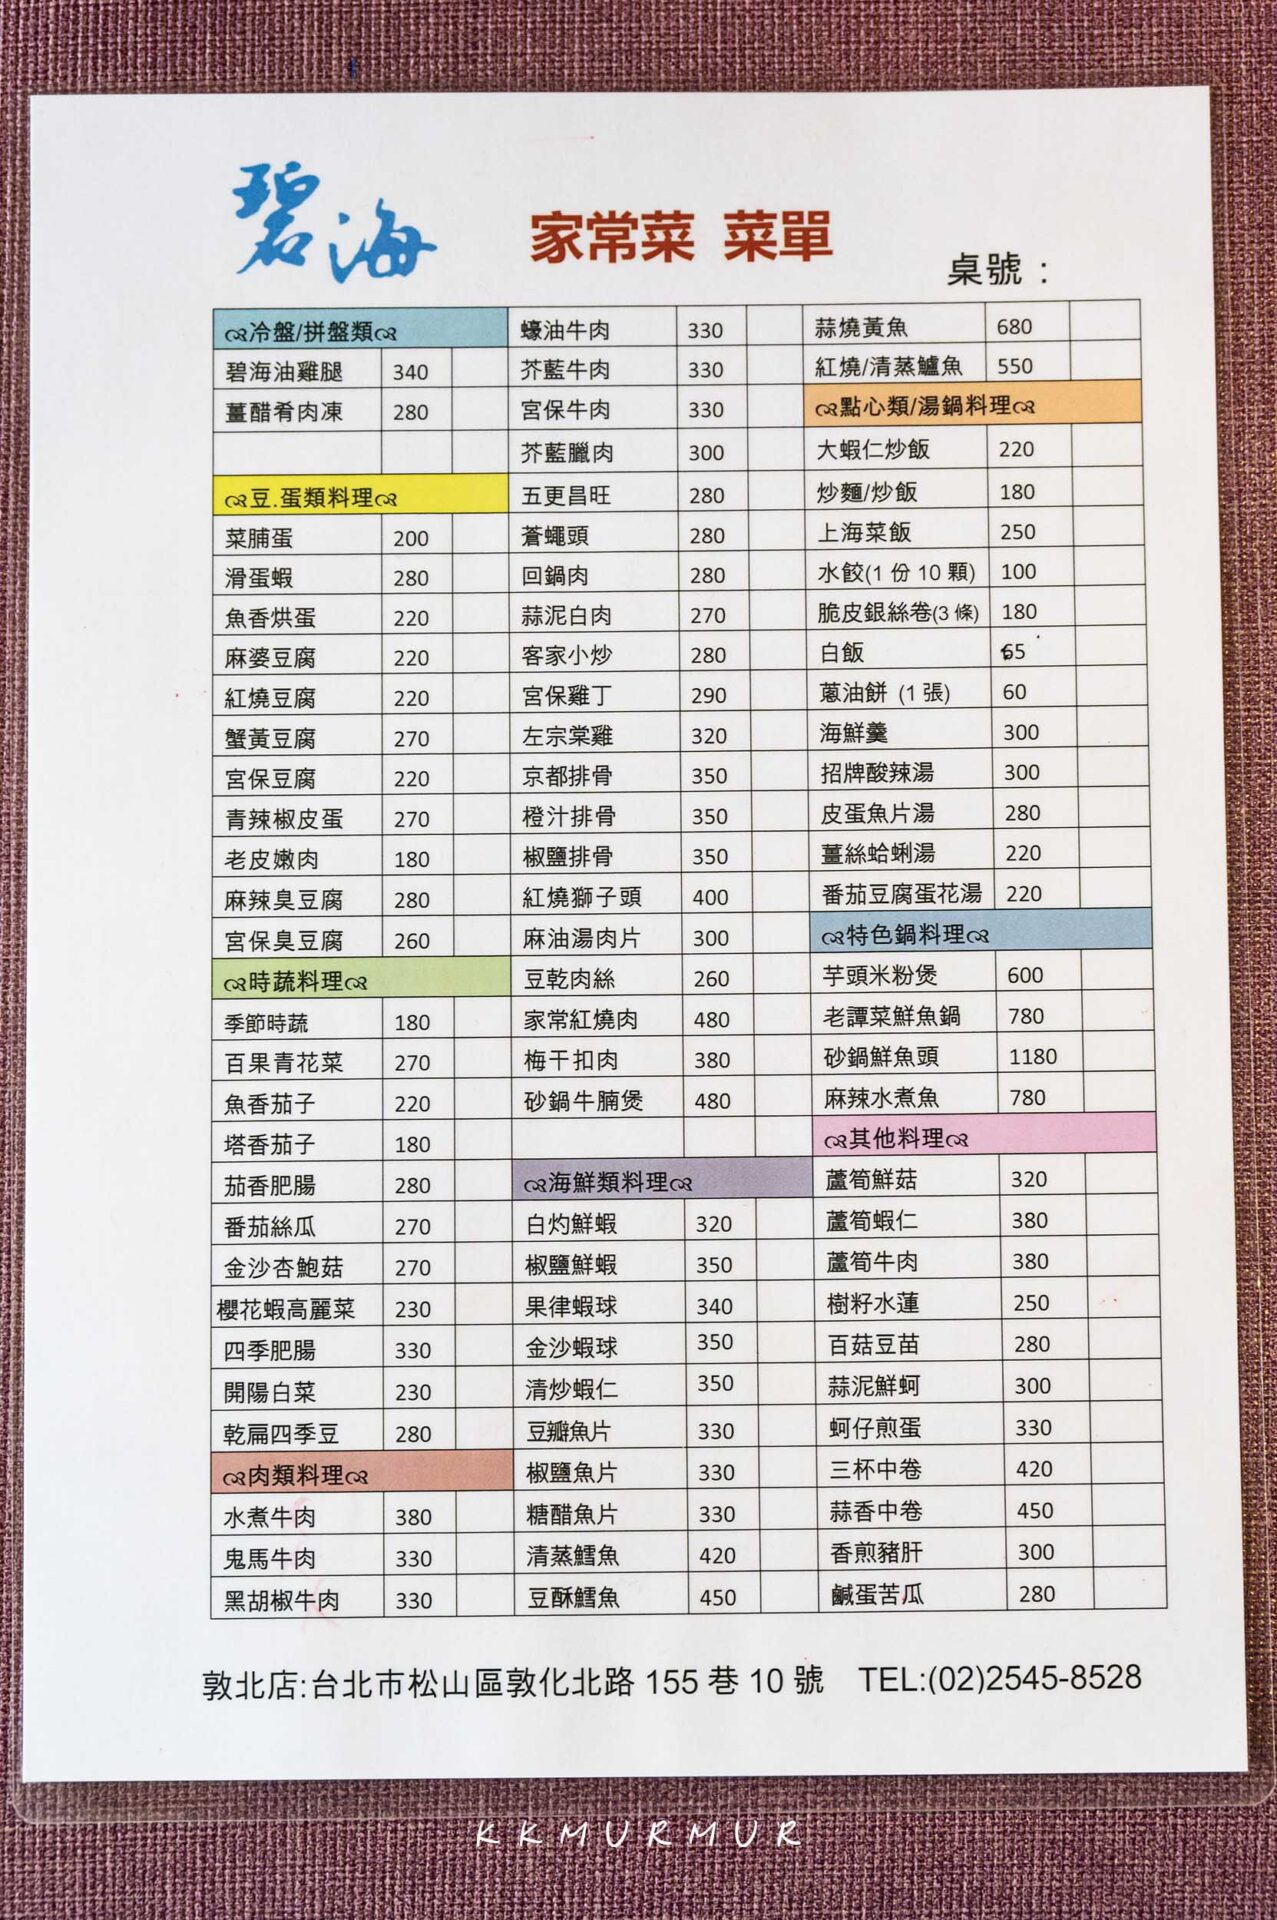 碧海
家常菜 菜單
桌號：
冷盤/拼盤類
碧海油雞腿 340
薑醋肴肉凍 280
豆.蛋類料理
菜脯蛋 200
滑蛋蝦 280
魚香烘蛋 220
麻婆豆腐 220
紅燒豆腐 220
蟹黃豆腐 270
宮保豆腐 220
青辣椒皮蛋 270
老皮嫩肉 180
麻辣臭豆腐 280
宮保臭豆腐 260
時蔬料理
季節時蔬 180
百果青花菜 270
魚香茄子 220
塔香茄子 180
茄香肥腸 280
番茄絲瓜 270
金沙杏鮑菇 270
櫻花蝦高麗菜 230
四季肥腸 330
開陽白菜 230
乾扁四季豆 280
肉類料理
水煮牛肉 380
鬼馬牛肉 330
黑胡椒牛肉 330
蠔油牛肉 330
芥藍牛肉 330
宮保牛肉 330
芥藍臘肉 300
五更昌旺 280
蒼蠅頭 280
回鍋肉 280
蒜泥白肉 270
客家小炒 280
宮保雞丁 290
左宗棠雞 320
京都排骨 350
橙汁排骨 350
椒鹽排骨 350
紅燒獅子頭 400
麻油湯肉片 300
豆乾肉絲 260
家常紅燒肉 480
梅干扣肉 380
砂鍋牛腩煲 480
海鮮類料理
白灼鮮蝦 320
椒鹽鮮蝦 350
果律蝦球 340
金沙蝦球 350
清炒蝦仁 350
豆瓣魚片 330
椒鹽魚片 330
糖醋魚片 330
清蒸鱈魚 420
豆酥鱈魚 450
蒜燒黃魚 680
紅燒/清蒸鱸魚 550
點心類/湯鍋料理
大蝦仁炒飯 220
炒麵/炒飯 180
上海菜飯 250
水餃(1 份 10 顆) 100
脆皮銀絲卷(3 條) 180
白飯
蔥油餅 (1 張) 60
海鮮羹 300
招牌酸辣湯 300
皮蛋魚片湯 280
薑絲蛤蜊湯 220
番茄豆腐蛋花湯 220
特色鍋料理
芋頭米粉煲 600
老譚菜鮮魚鍋 780
砂鍋鮮魚頭 1180
麻辣水煮魚 780
其他料理
蘆筍鮮菇 320
蘆筍蝦仁 380
蘆筍牛肉 380
樹籽水蓮 250
百菇豆苗 280
蒜泥鮮蚵 300
蚵仔煎蛋 330
三杯中卷 420
蒜香中卷 450
香煎豬肝 300
鹹蛋苦瓜 280
敦北店:台北市松山區敦化北路 155 巷 10 號 TEL:(02)2545-8528
KKMURMUR